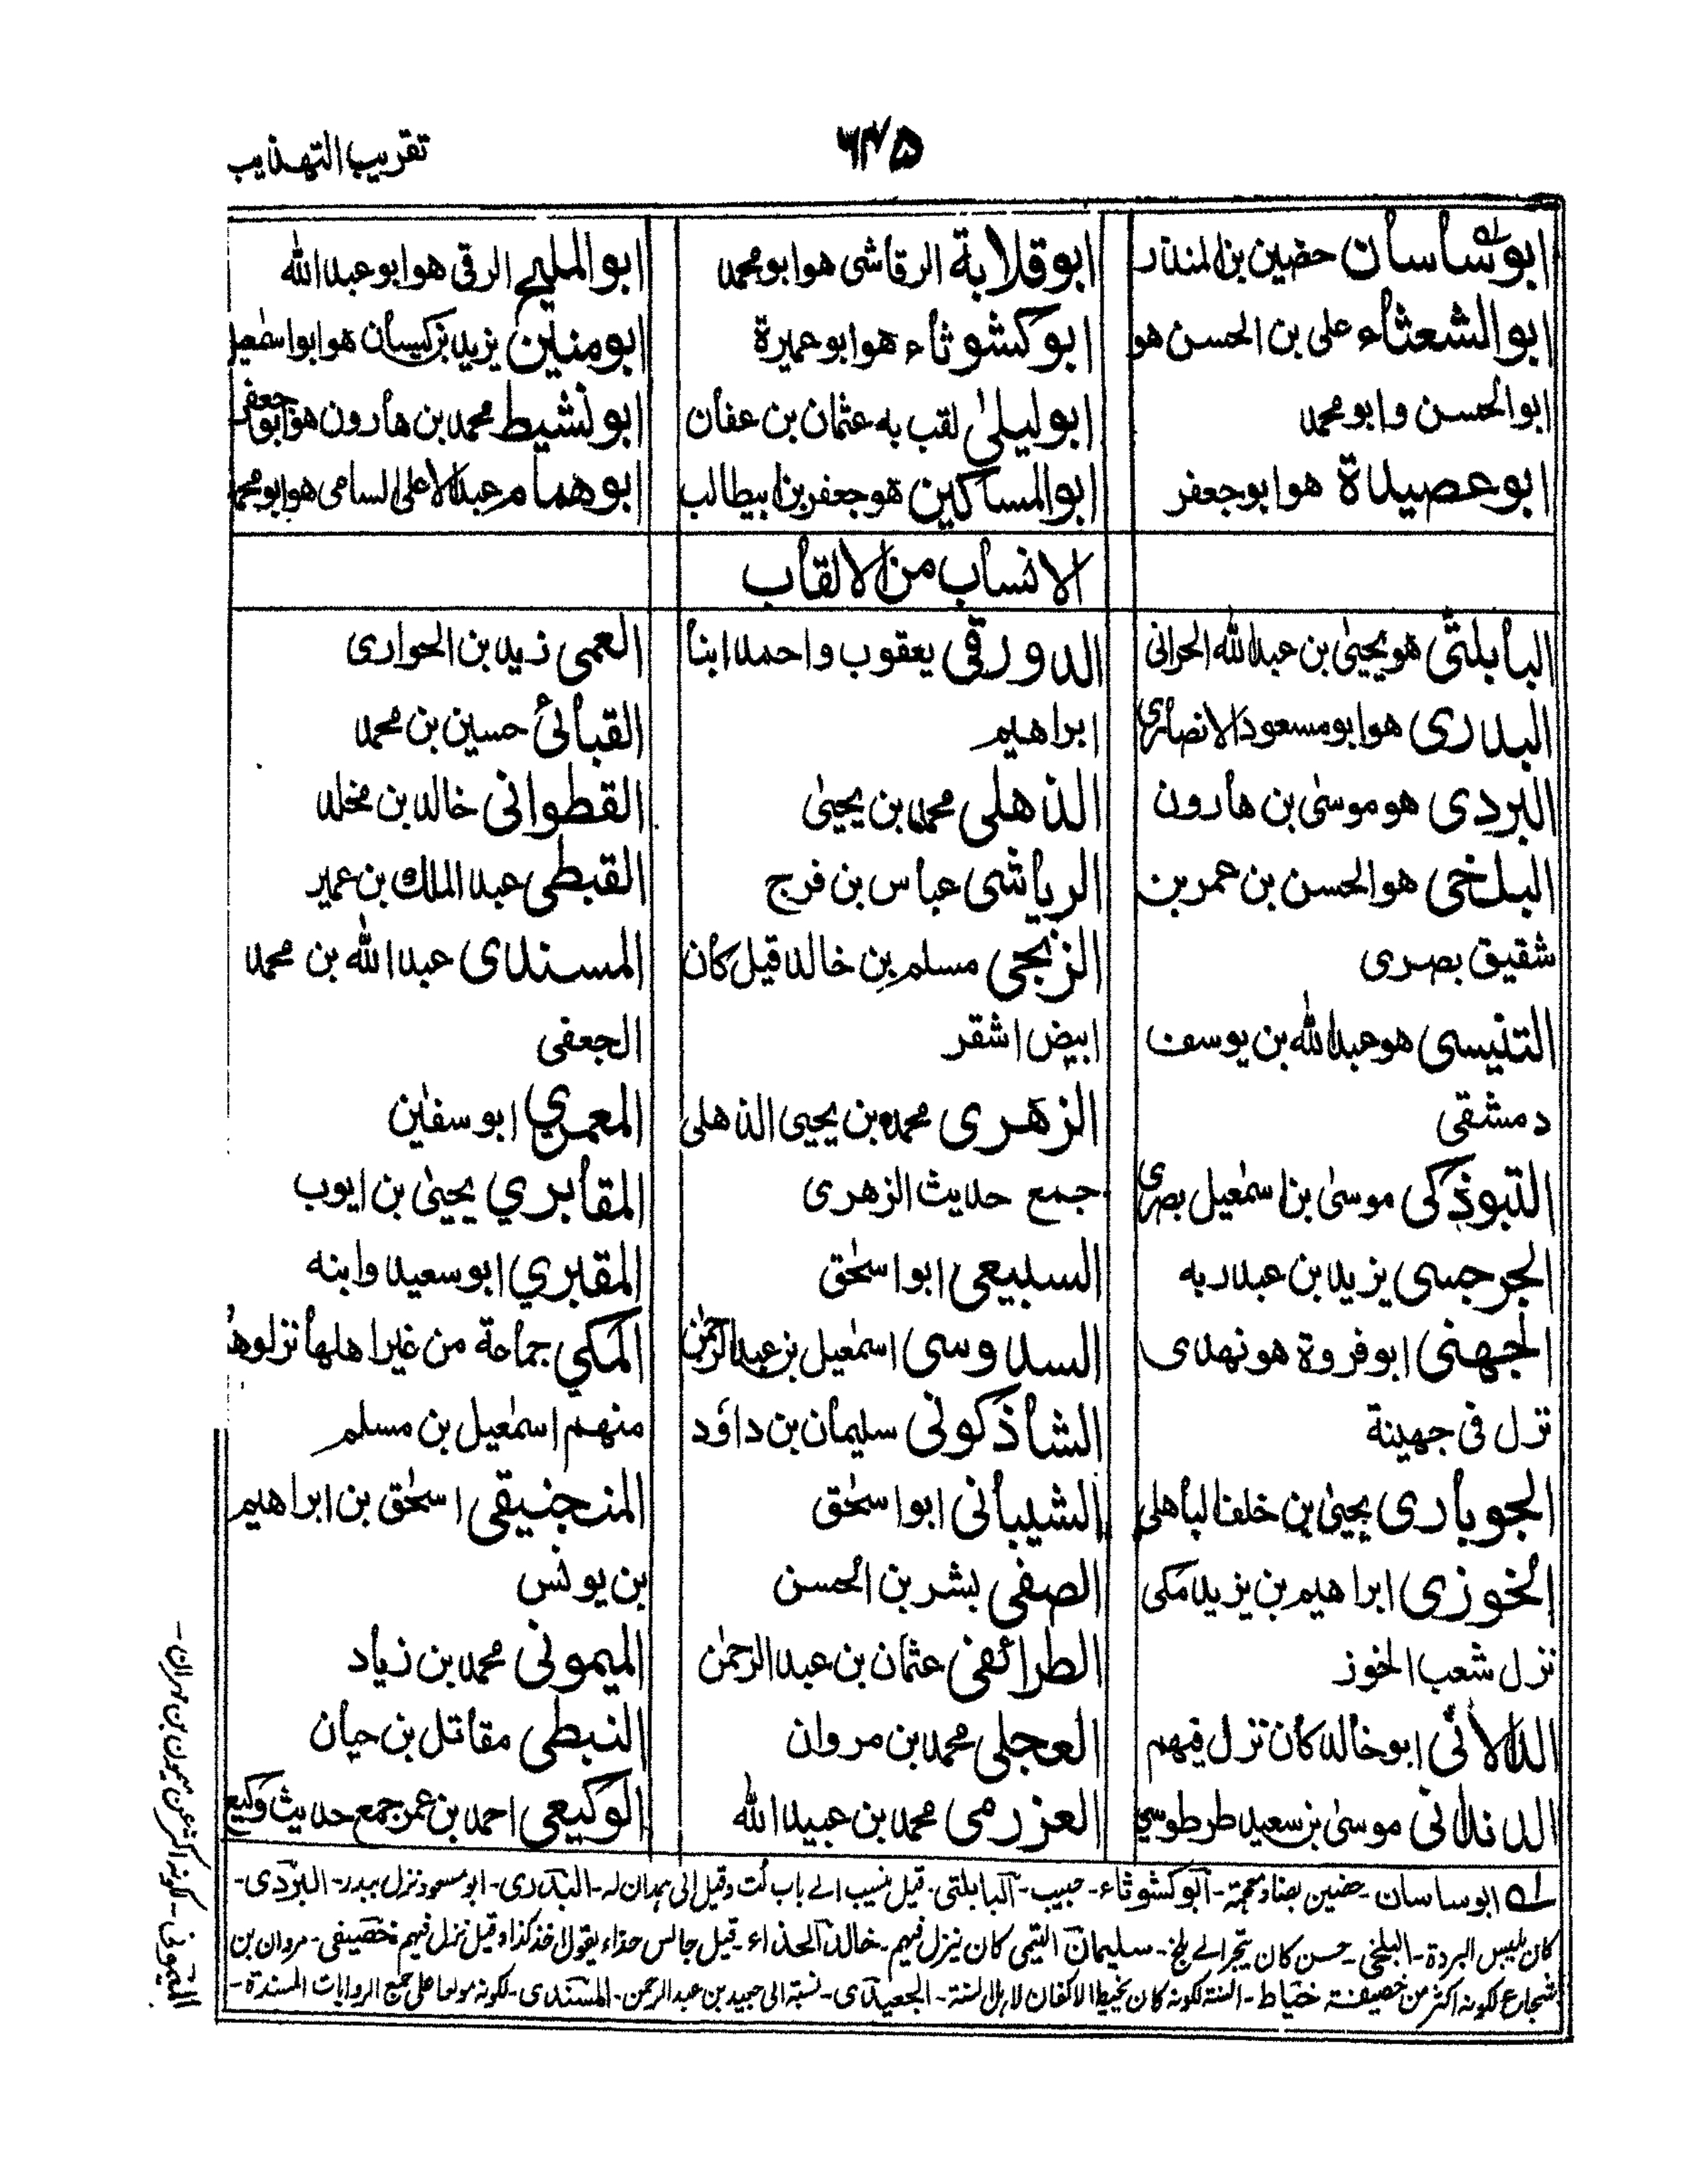 تقريب التهذيب
٦٣٥
ابو ساسان حضين بن المنذر
ابو الشعثاء على بن الحسن هو
ابو الحسن وابو محمد
ابو عصيدة هو ابو جعفر
ابو قلابة الرقاشى هو ابو محمد
ابو كشوثاء هو ابو عميرة
ابو ليلىٰ لقب به عثمان بن عفان
ابو المساكين هو جعفر بن ابيطالب
ابو المليح الرقى هو ابو عبد الله
ابو منين يزيد بن كيسان هو ابو اسمٰعيل
ابو نشيط محمد بن هارون هو ابو جعفر
ابو همام عبد الاعلى السامى هو ابو محمد
الانساب من الالقاب
البابلتى هو يحيىٰ بن عبد الله الحرانى
البدرى هو ابو مسعود الانصارى
البردى هو موسىٰ بن هارون
البلخى هو الحسن بن عمر بن
شقيق بصرى
التنيسى هو عبد الله بن يوسف
دمشقى
التبوذكى موسىٰ بن اسمٰعيل بصرى
الجرجسى يزيد بن عبد ربه
الجهنى ابو فروة هو نهدى
نزل فى جهينة
الجوبارى يحيىٰ بن خلف الباهلى
الخوزى ابراهيم بن يزيد مكى
نزل شعب الخوز
الدالانى ابو خالد كان نزل فيهم
الدندانى موسىٰ بن سعيد طرطوسى
الدورقى يعقوب واحمد ابنا
ابراهيم
الذهلى محمد بن يحيىٰ
الرياشى عباس بن فرج
الزنجى مسلم بن خالد قيل كان
ابيض اشقر
الزهرى محمد بن يحيى الذهلى
جمع حديث الزهرى
السبيعى ابو اسحٰق
السدوسى اسمٰعيل بن عبد الرحمٰن
الشاذكونى سليمان بن داؤد
الشيبانى ابو اسحٰق
الصفى بشر بن الحسن
الطرائفى عثمان بن عبد الرحمٰن
العجلى محمد بن مروان
العزرمى محمد بن عبيد الله
العمى زيد بن الحوارى
القبائى حسين بن محمد
القطوانى خالد بن مخلد
القبطى عبد الملك بن عمير
المسندى عبد الله بن محمد
الجعفى
المعمري ابو سفين
المقابري يحيىٰ بن ايوب
المقبري ابو سعيد وابنه
المكي جماعة من غير اهلها نزلوها
منهم اسمٰعيل بن مسلم
المنجنيقى اسحٰق بن ابراهيم
بن يونس
الميمونى محمد بن زياد
النبطى مقاتل بن حيان
الوكيعى احمد بن عمر جمع حديث وكيع
لـه ابو ساسان - حضين بضاد معجمة - ابو كشوثاء - حبيب - البابلتى - قيل ينسيب الے باب لت وقيل الى بهدان له - البدرى - ابو مسعود نزل ببدر - البردى -
كان يلبس البردة - البلخى - حسن كان يتجر الے بلخ - سليمان التيمى كان ينزل فيهم - خالد الحذاء - قيل جالس حذاء يقول لا خذ كذا وقيل نزل فيهم - خصيفى - مروان بن
شجاع لكونه اكثر من خصيف - خياط - السنة لكونه كان يخيط الاكفان لاهل السنة - الجعيدى - نسبة الى جعيد بن عبد الرحمن - المسندى - لكونه مولعا على جميع الروايات المسندة -
الميمونى - لكونه اكثر عن ميمون بن مهران -